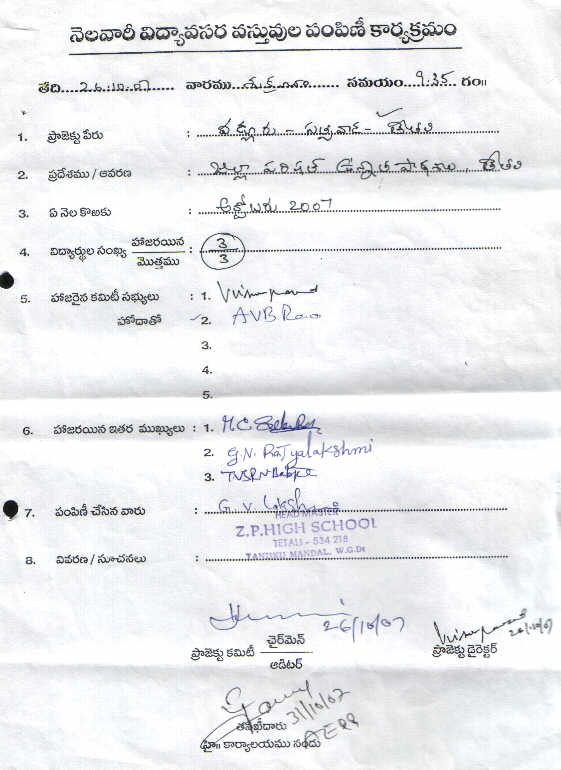 నెలవారీ విద్యావసర వస్తువుల పంపిణీ కార్యక్రమం
తేది....26.10.07...... వారము...శుక్రవారం....... సమయం....9.35 గం॥
1. ప్రాజెక్టు పేరు : – తేతలి
2. ప్రదేశము / ఆవరణ : జిల్లా పరిషత్ ఉన్నత పాఠశాల, తేతలి
3. ఏ నెల కొఱకు : అక్టోబరు 2007
4. విద్యార్థుల సంఖ్య హాజరయిన / మొత్తము : 3 / 3
5. హాజరైన కమిటీ సభ్యులు : 1.
హోదాతో 2. AVB Rao
3.
4.
5.
6. హాజరయిన ఇతర ముఖ్యులు : 1. M.C
2. G.N. Rajyalakshmi
3.
7. పంపిణీ చేసిన వారు : G. V
HEAD MASTER
Z.P.HIGH SCHOOL
TETALI - 534 218
TANUKU MANDAL, W.G.Dt
8. వివరణ / సూచనలు :
26/10/07
ప్రాజెక్టు కమిటీ ఛైర్‌మెన్ / ఆడిటర్
26/10/07
ప్రాజెక్టు డైరెక్టర్
31/10/07
తనిఖీదారు
హై॥ కార్యాలయము నందు